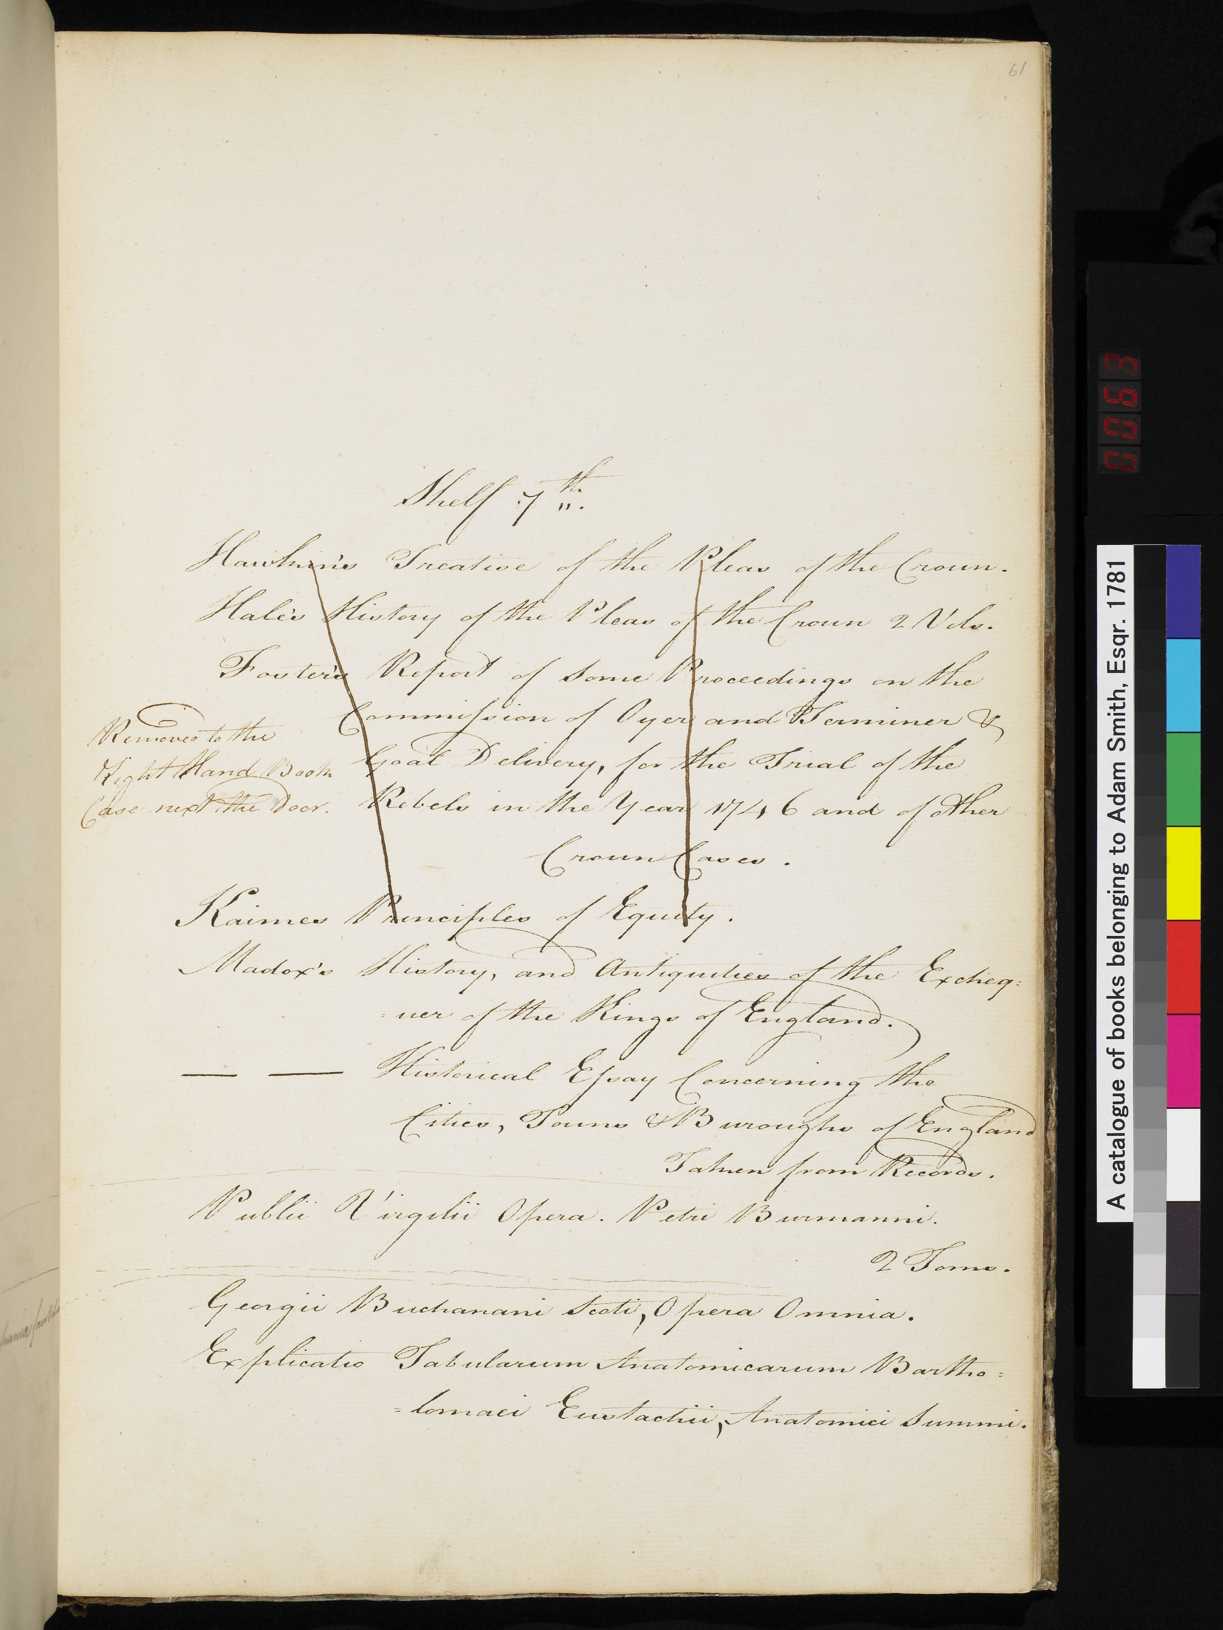 61
Shelf 7th.
Hawkins's Treatise of the Pleas of the Crown.
Hale's History of the Pleas of the Crown 2 Vols.
Foster's Report of some Proceedings on the
Commission of Oyer and Terminer &
Goal Delivery, for the Trial of the
Rebels in the Year 1746 and of other
Crown Cases.
Removed to the
Right Hand Book
Case next the Door.
Kaimes Principles of Equity.
Madox's History, and Antiquities of the Excheq=
=uer of the Kings of England.
— — Historical Essay Concerning the
Cities, Towns & Buroughs of England
Taken from Records.
Publii Virgilii Opera. Petri Burmanni.
2 Toms.
Georgii Buchanani Scoti, Opera Omnia.
Explicatio Tabularum Anatomicarum Bartho=
=lomaei Eustachii, Anatomici Summi.
0063
A catalogue of books belonging to Adam Smith, Esqr. 1781